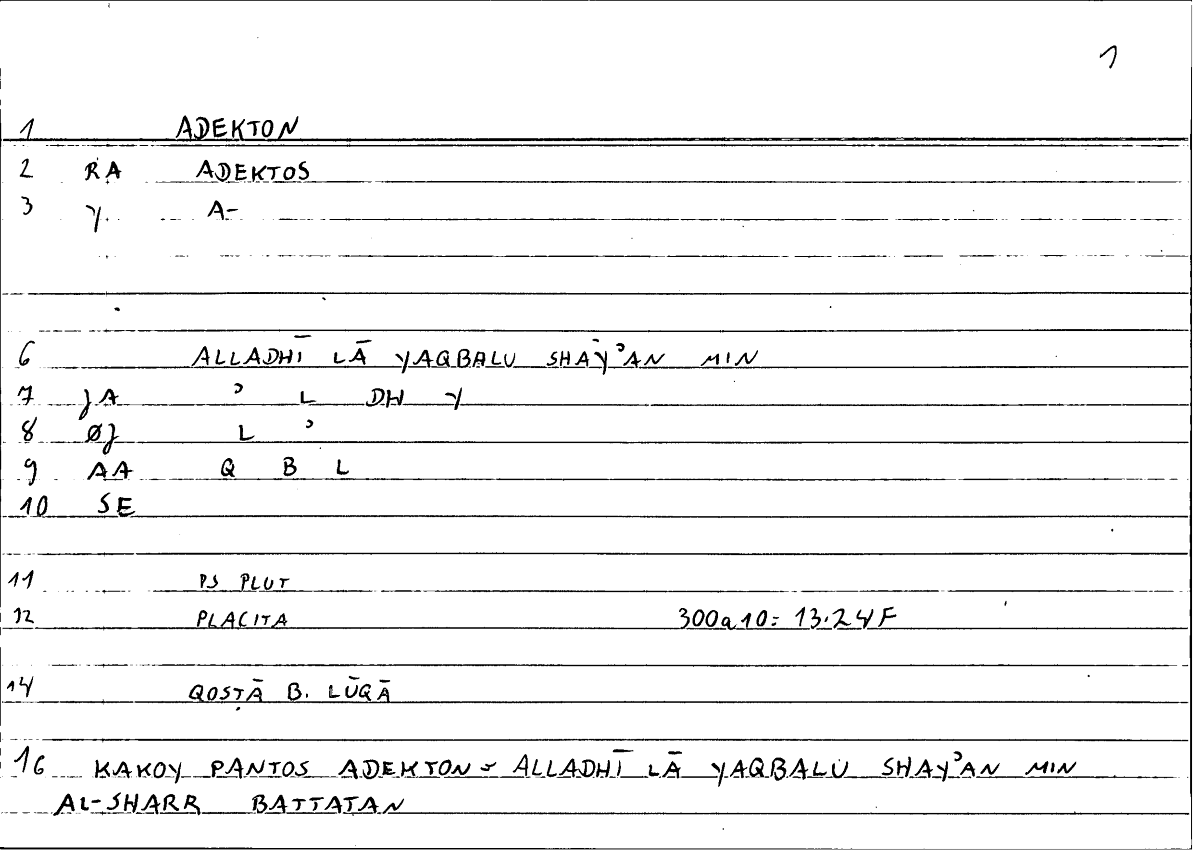 1
1 ADEKTON
2 RA ADEKTOS
3 Y A-
6 ALLADHĪ LĀ YAQBALU SHAYʾAN MIN
7 JA ʾ L DH Y
8 ØJ L ʾ
9 AA Q B L
10 SE
11 PS PLUT
12 PLACITA 300a10 = 13.24F
14 QOSṬĀ B. LŪQĀ
16 KAKOY PANTOS ADEKTON = ALLADHĪ LĀ YAQBALU SHAYʾAN MIN
AL-SHARR BATTATAN